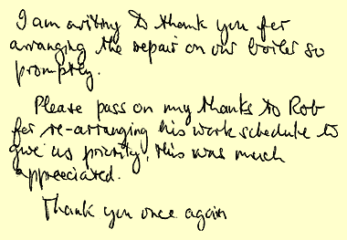 I am writing to thank you for
arranging the repair on our boiler so
promptly.
Please pass on my thanks to Rob
for re-arranging his work schedule to
give us priority, this was much
appreciated.
Thank you once again